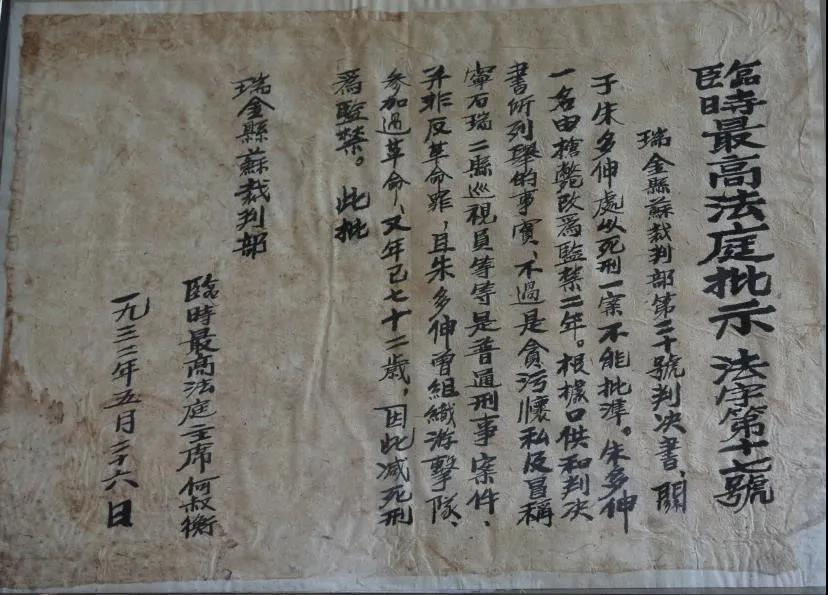 臨時最高法庭批示 法字第十七號
瑞金縣蘇裁判部第二十號判决書、關
于朱多伸處以死刑一案不能批準。朱多伸
一名由槍斃改爲監禁二年。根據口供和判决
書所列舉的事實、不過是貪污懷私及冒稱
寧石瑞二縣巡視員等等是普通刑事案件、
并非反革命罪，且朱多伸曾組織游擊隊、
參加過革命、又年已七十二歲，因此减死刑
爲監禁。 此批
瑞金縣蘇裁判部
臨時最高法庭主席何叔衡
一九三二年五月二十六日